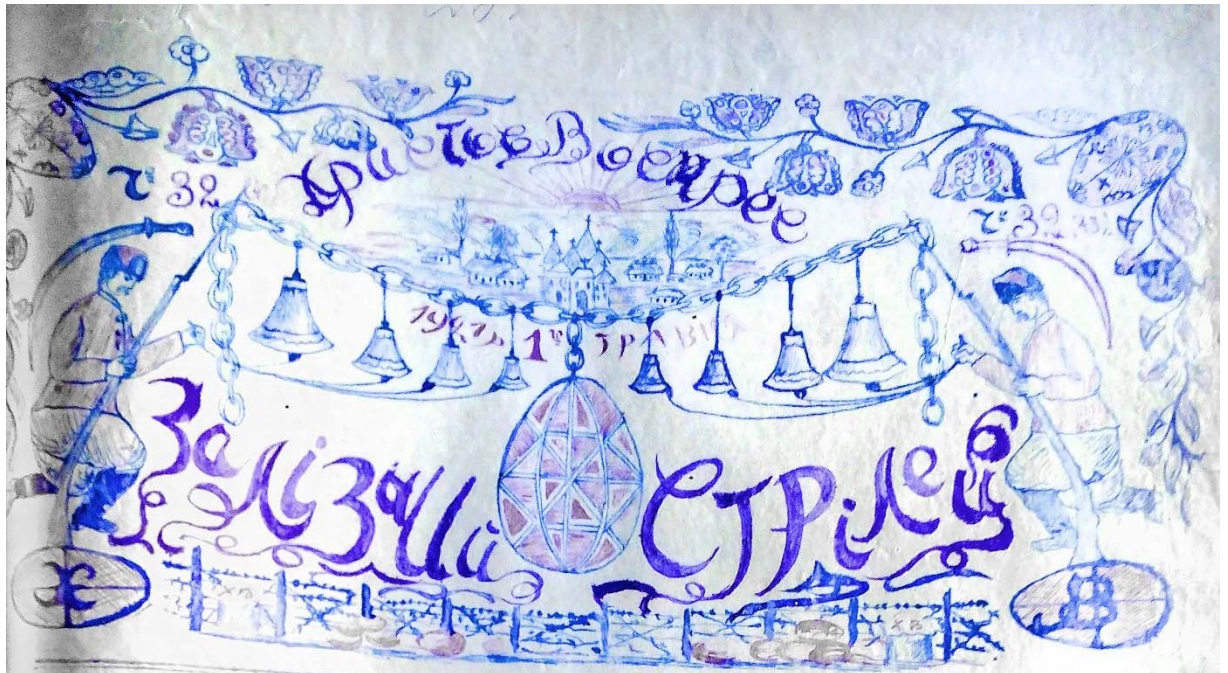 Христос Воскрес
ч 32
ч 32
1921р. 1го травня
Залізний Стрілець
Х В